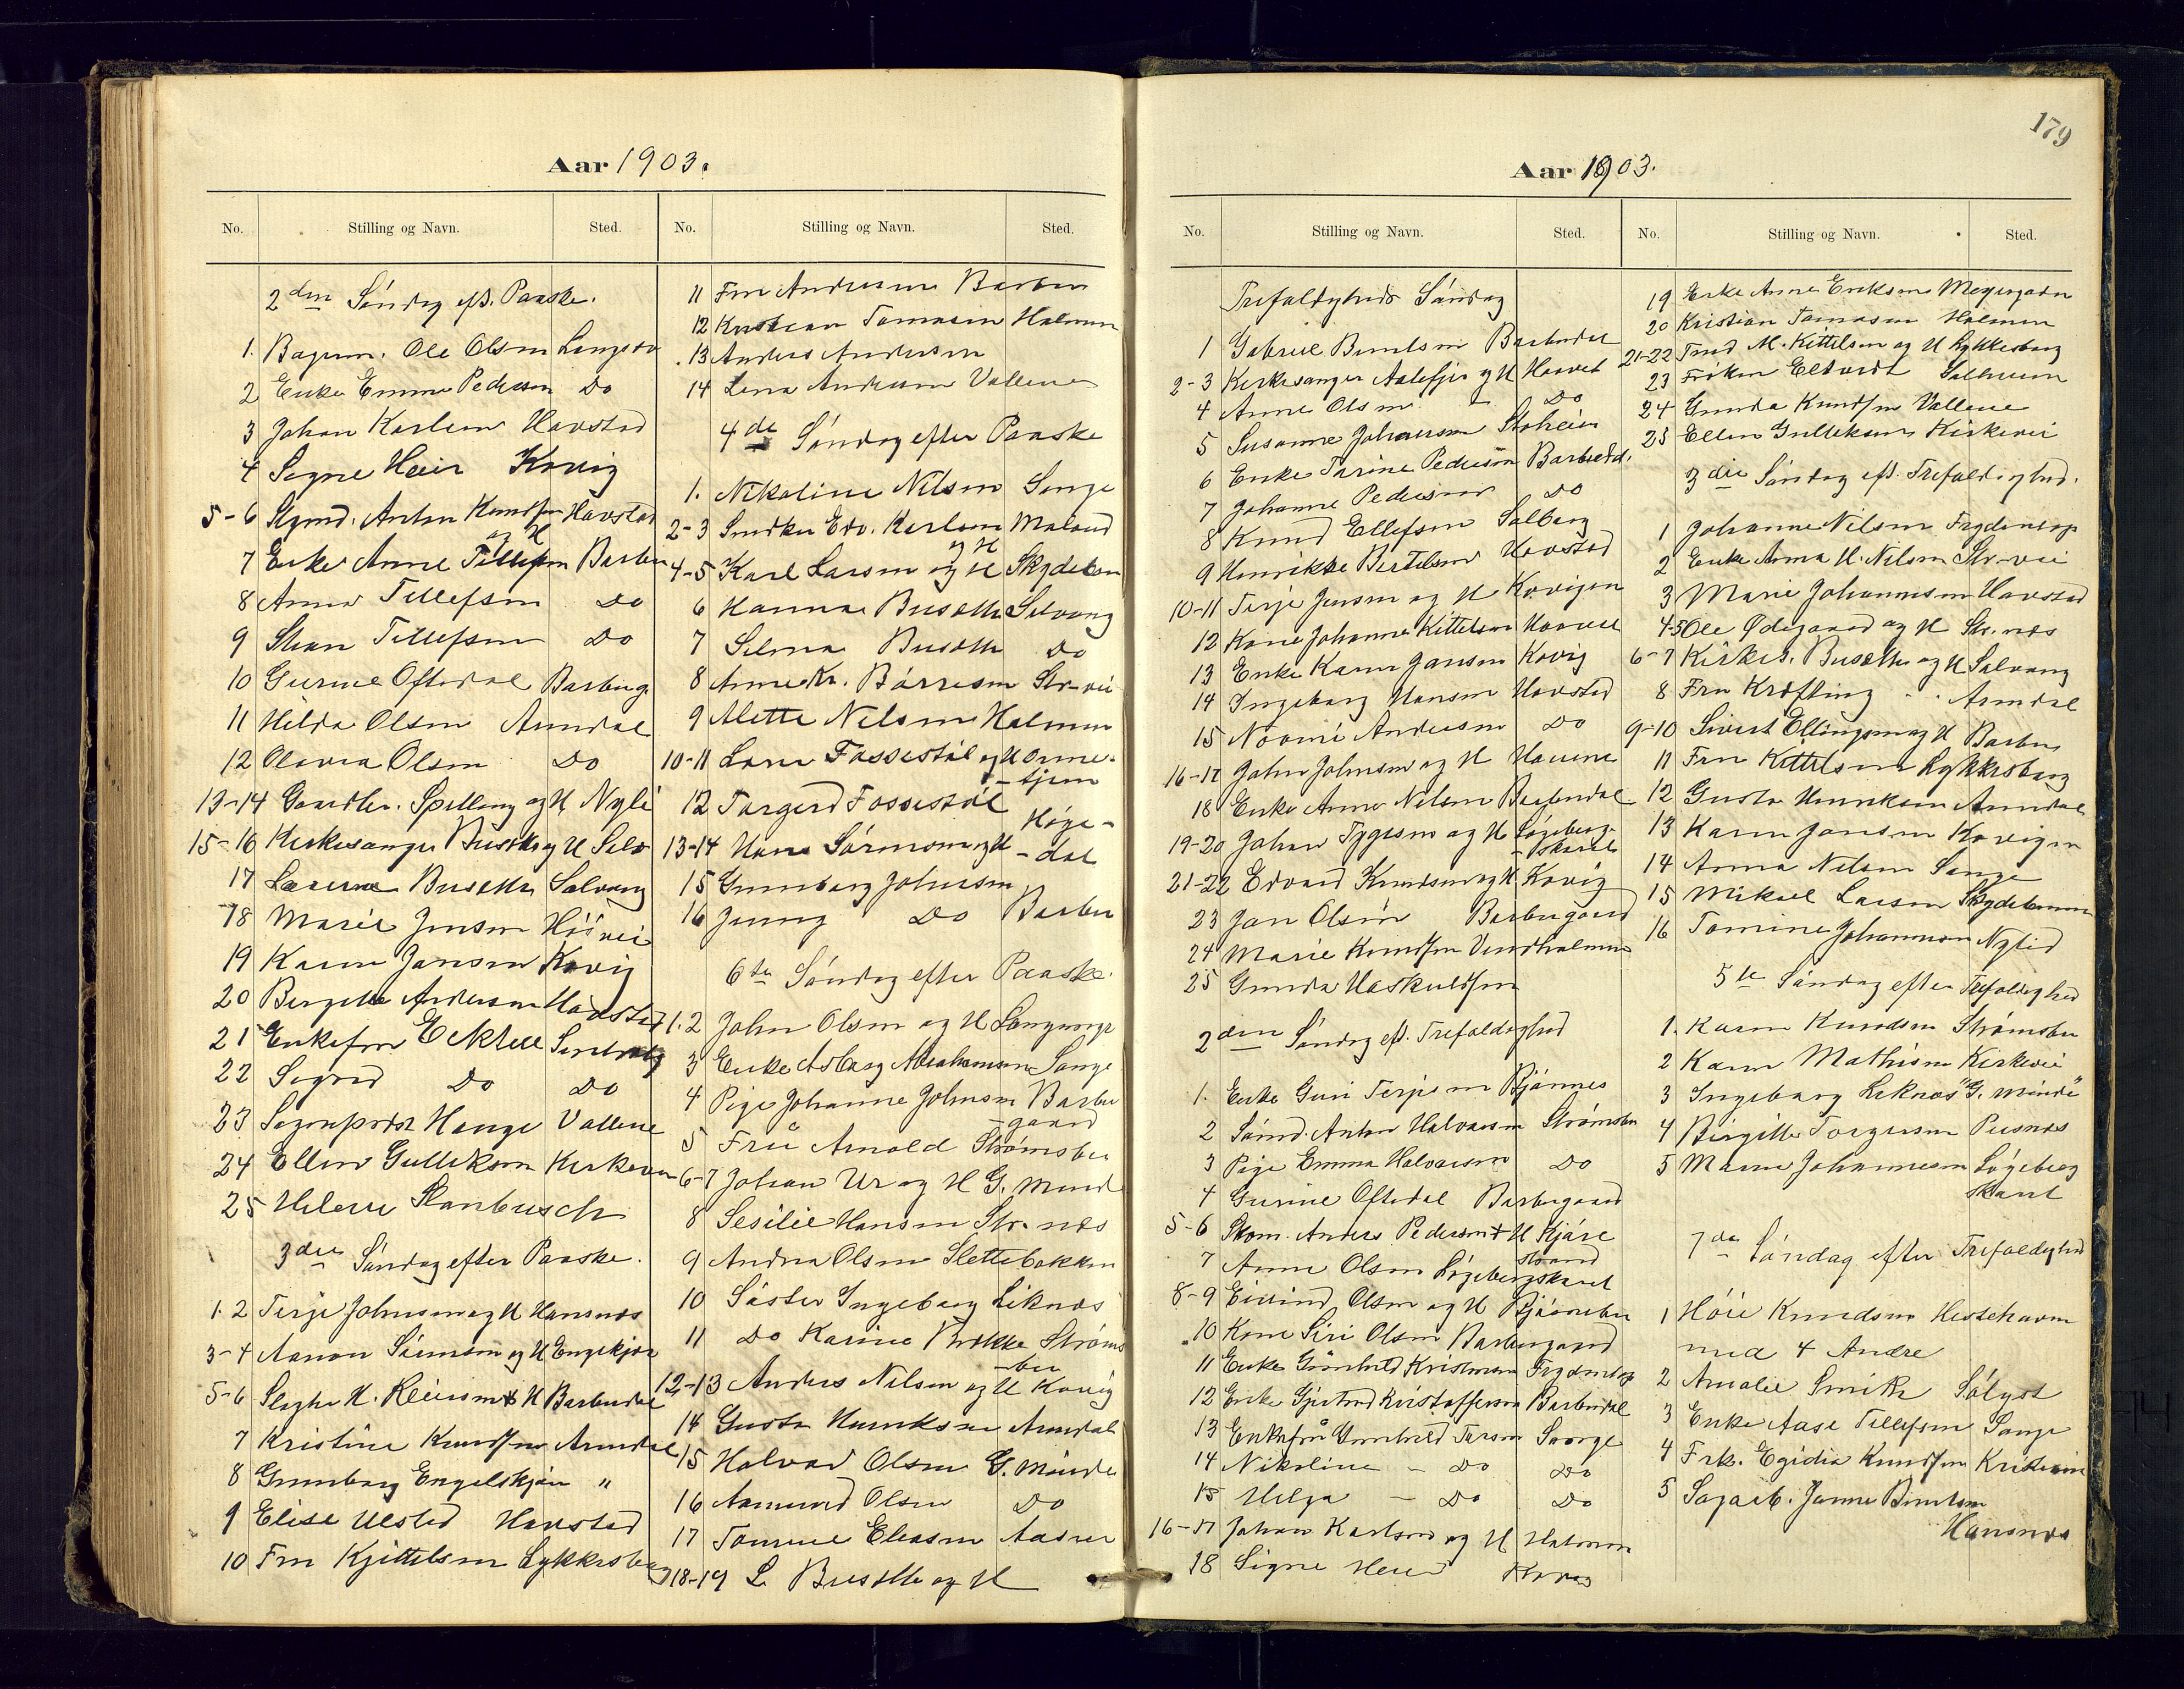 Aar 1903.
No. Stilling og Navn. Sted.
2den Söndag eft. Paaske.
1. Ole Olsen Langsæ
2 Enke Emma Pedersen Do
3 Johan Karlsen Havstad
4 Signe Heir Kovig
5-6 Anton Knudsen Havstad
og H
7 Enke Anne Tellefsen Barbu
8 Anna Tellefsen Do
9 Tellefsen Do
10 Gurine Oftedal Barbug.
11 Hilda Olsen Arendal
12 Olava Olsen Do
13-14 Spilling og H Nyli
15-16 Kirkesanger Buseth og H Solv
17 Buseth Solvang
18 Marie Jensen Höivei
19 Karen Jansen Kovig
20 Bergitte Andersen Havstad
21 Enkefru
22 Sigrid Do Do
23 Sogneprest Hauge Vollene
24 Ellen Gulleksen Kirkevei
25 Helene
3die Söndag efter Paaske.
1.2 Terje Johnsen og H Hansnæs
3-4 Aanon Sörensen og H Engekjær
5-6 H. Reiersen & H Barbudal
7 Kristine Knudsen Arendal
8 Gunborg Engelskjön "
9 Elise Ulsted Havstad
10 Fru Kjittelsen Lykkesborg
No. Stilling og Navn. Sted.
11 Fru Andersen Barbu
12 Kristian Tomasen Holmen
13 Anders Andersen
14 Lena Andersen Vollene
4de Söndag efter Paaske
1. Nikoline Nilsen Songe
2-3 Snedker Edv. Karlsen Molund
og H
4-5 Karl Larsen og H Skydeban
6 Hanna Buseth Solvang
7 Selma Buseth Do
8 Anne Kr. Börresen Str-vei
9 Alette Nilsen Holmen
10-11 Lars Fossestöl og H Orme-
-tjern
12 Torgerd Fossestöl
13-14 Hans Sörensen og H Höge-
-dal
15 Gunborg Johnsen
16 Jenny Do Barbu
6te Söndag efter Paaske.
1.2 John Olsen og H Langsæ
3 Enke Asborg Abrahamsen Songe
4 Pige Johanne Johnsen Barbu
gaard
5 Frü Arnold Strömsbu
6-7 Johan Ur og H G. Minde
8 Sesilie Hansen Str. næs
9 Andrea Olsen Slettebakken
10 Söster Ingeborg Liknæs
11 Do Karine Brokke Ströms
-bu
12-13 Anders Nilsen og H Kovig
14 Gusta Henriksen Arendal
15 Halvor Olsen G. Minde
16 Aamund Olsen Do
17 Tomine Eliasen
18-19 L. Buseth og H
179
Aar 1903.
No. Stilling og Navn. Sted.
Trefoldigheds Söndag
1 Gabriel Berntsen Barbudal
2-3 Kirkesanger Aalefjær og H Haavet
4 Anne Olsen - Do
5 Susanne Johansen Stoheien
6 Enke Tarine Pedersen Barbudd.
7 Johanne Pedersen Do
8 Knud Ellefsen Solberg
9 Henrikke Bertelsen Havstad
10-11 Terje Jensen og H Kovigen
12 Kone Johanne Kittelsen Haavet
13 Enke Karen Jansen Kovig
14 Ingeborg Hansen Havstad
15 Noomi Andersen Do
16-17 John Johnsen og H Havene
18 Enke Anne Nilsen Barbudal
19-20 Johan Tygesen og H Lögeberg-
-skaret
21-22 Edvard Knudsen og H Kovig
23 Jan Olsen Barbugaard
24 Marie Knudsen Vindholmen
25 Gunda Haskuldsen
2den Söndag eft. Trefoldighed
1. Enke Guri Terjesen Bjönnes
2 Sömd. Anton Halvorsen Strömsbu
3 Pige Emma Halvorsen Do
4 Gurine Oftedal Barbugaard
5-6 Skom. Anders Pedersen & H Kjære
strand
7 Anne Olsen Lögebergskaret
8-9 Eivind Olsen og H Bjönnebu
10 Kone Siri Olsen Barbugaard
11 Enke Gunhild Kristensen Frydenlop
12 Enke Gjertrud Kristoffersen Barbudal
13 Enkefrü Gunhild Torsen Songe
14 Nikoline - Do Do
15 Helga - Do Do
16-17 Johan Karlsen og H Holmen
18 Signe Heir Kovig
No. Stilling og Navn. Sted.
19 Enke Anne Eriksen Meyergaden
20 Kristian Tomasen Holmen
21-22 Tred M. Kittelsen og H Lykkesborg
23 Fröken Eltvedt Solheim
24 Gunda Knudsen Vollene
25 Ellen Gulleksen Kirkevei
3die Söndag eft. Trefoldighed.
1 Johanne Nilsen Frydenlop
2 Enke Anna H. Nilsen Str-vei
3 Marie Johannesen Havstad
4-5 Ole Ødegaard og H Str. næs
6-7 Kirkes. Buseth og H Solvang
8 Fru Kröfting Arendal
9-10 Sivert Ellingsen og H Barbu
11 Fru Kittelsen Lykkesborg
12 Gusta Henriksen Arendal
13 Karen Jansen Kovigen
14 Anna Nilsen Songe
15 Mikael Larsen Skydebanen
16 Tomine Johannesen Nylid
5te Söndag efter Trefoldighed
1. Karen Knudsen Strømsbu
2 Karen Mathisen Kirkevei
3 Ingeborg Liknæs "G. Minde"
4 Birgitte Torgersen Pusnes
5 Maren Johannesen Lögeberg
skaret
7da Söndag efter Trefoldighed
1 Höie Knudsen Hestehaven
med 4 Andre
2 Amalie Smith Sölyst
3 Enke Aase Tellefsen Songe
4 Frk. Egidia Knudsen Kirkevei
5 Sagarb. Janne Berntsen
Hansnæs